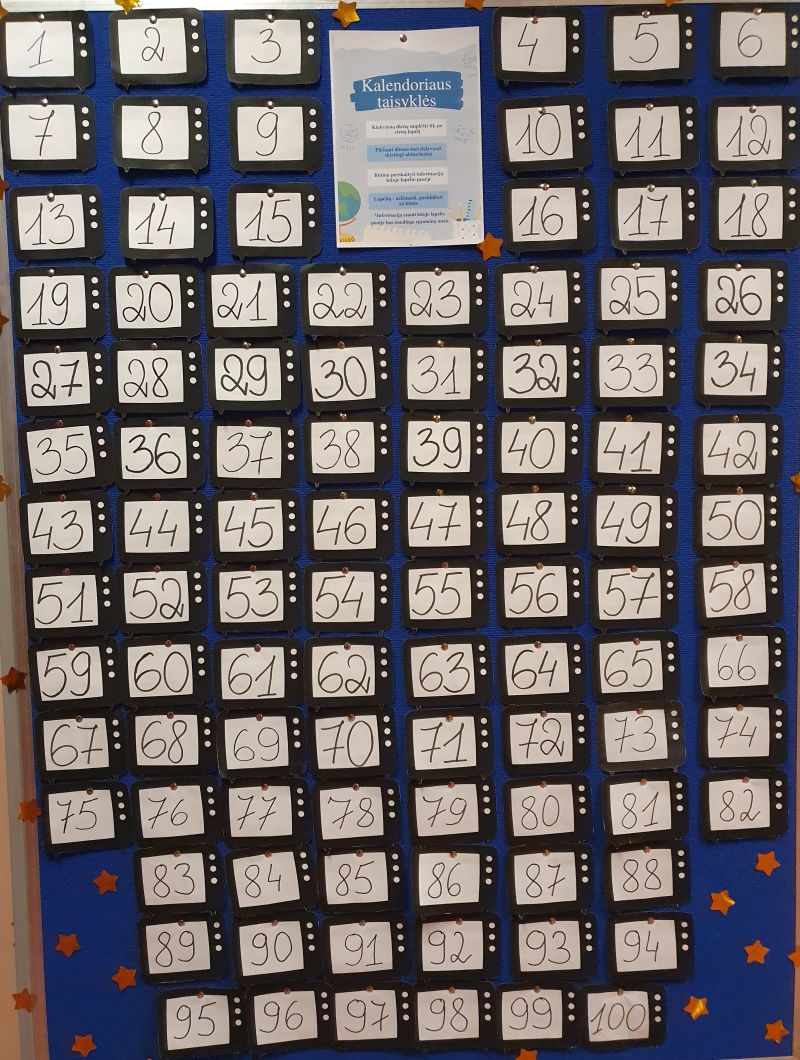 1 2 3 4 5 6
Kalendoriaus
taisyklės
7 8 9 10 11 12
Kiekvieną dieną nuplėšti tik po
vieną lapelį
Plėšant dienas turi dalyvauti
skirtingi abiturientai
Būtina perskaityti informaciją
kitoje lapelio pusėje
13 14 15 16 17 18
Lapelių - nešimesti, pasidalinti
su kitais
*Informacija esanti kitoje lapelio
pusėje bus naudinga egzaminų metu
19 20 21 22 23 24 25 26
27 28 29 30 31 32 33 34
35 36 37 38 39 40 41 42
43 44 45 46 47 48 49 50
51 52 53 54 55 56 57 58
59 60 61 62 63 64 65 66
67 68 69 70 71 72 73 74
75 76 77 78 79 80 81 82
83 84 85 86 87 88
89 90 91 92 93 94
95 96 97 98 99 100